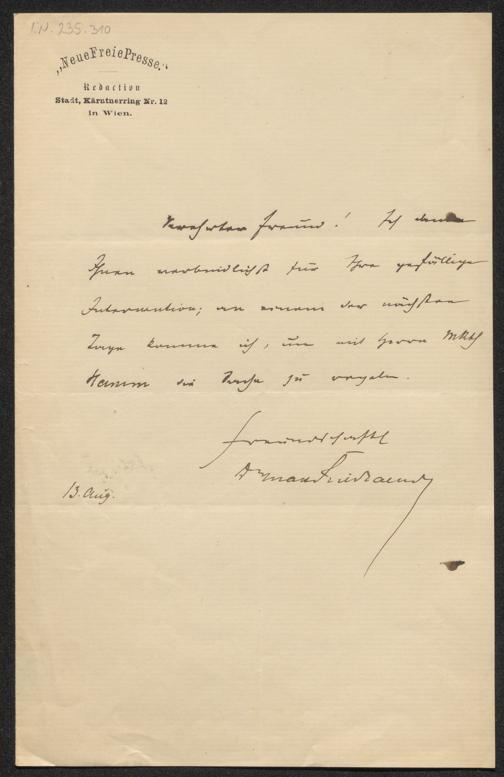 I.N. 235.310
„Neue Freie Presse.“
Redaction
Stadt, Kärntnerring Nr. 12
in Wien.
Verehrter Freund! Ich danke
Ihnen verbindlichst für Ihre gefällige
Intervention; an einem der nächsten
Tage komme ich, um mit Herrn
Hamm die Sache zu regeln.
Freundschaftl
Dr Max Friedlaender
13. Aug.